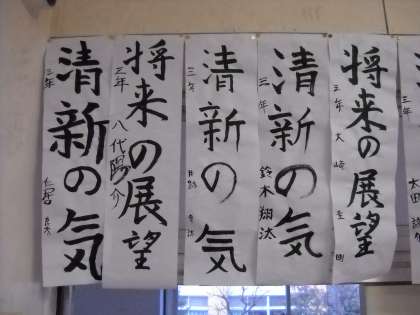 将来の展望
三年 大崎
清新の気
三年 鈴木翔汰
清新の気
三年
将来の展望
三年 八代陽介
清新の気
三年